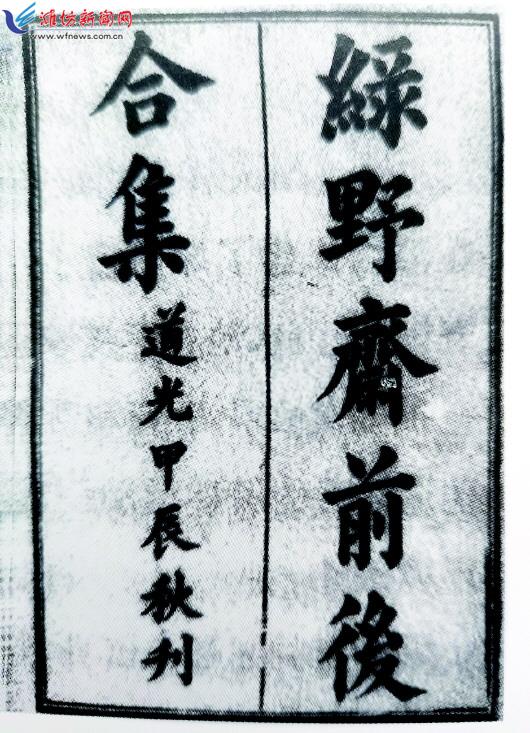 潍坊新闻网
www.wfnews.com.cn
綠野齋前後
合集道光甲辰秋刋